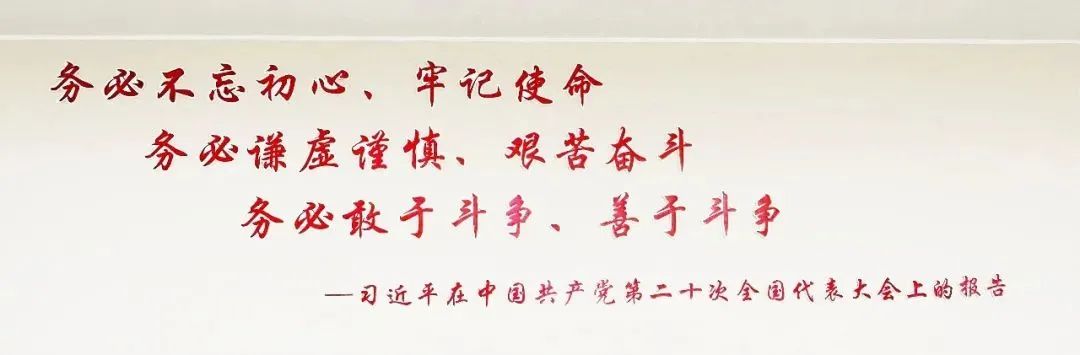 务必不忘初心、牢记使命
务必谦虚谨慎、艰苦奋斗
务必敢于斗争、善于斗争
—习近平在中国共产党第二十次全国代表大会上的报告